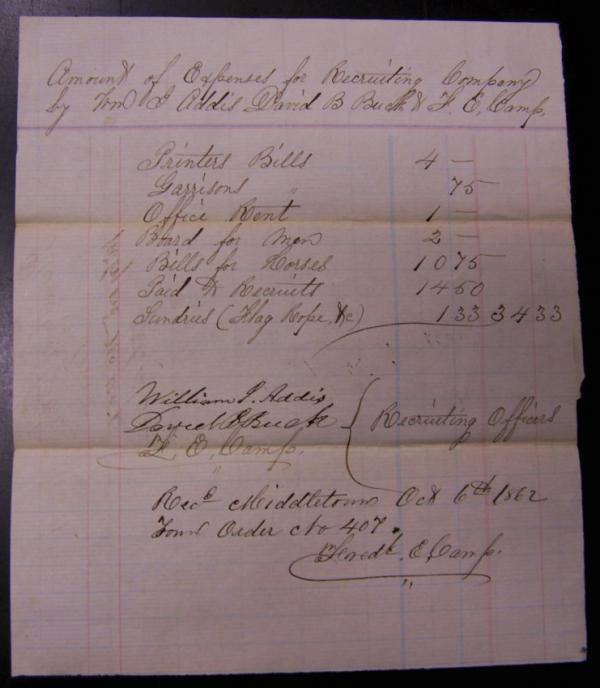 Amount of Expenses for Recruiting Company
by Wm J Addis David B Buck & F. E. Camp.
Printers Bills 4 —
Garrisons " 75
Office Rent 1 —
Board for Men 2 —
Bills for Horses 10 75
Paid to Recruits 14 50
Sundries (Flag Rope, &c) 1 33 34 33
William J. Addis
David B Buck
F. E. Camp.
Recruiting Officers
Recd Middletown Oct 6th 1862
Town Order No 407.
E. Camp.